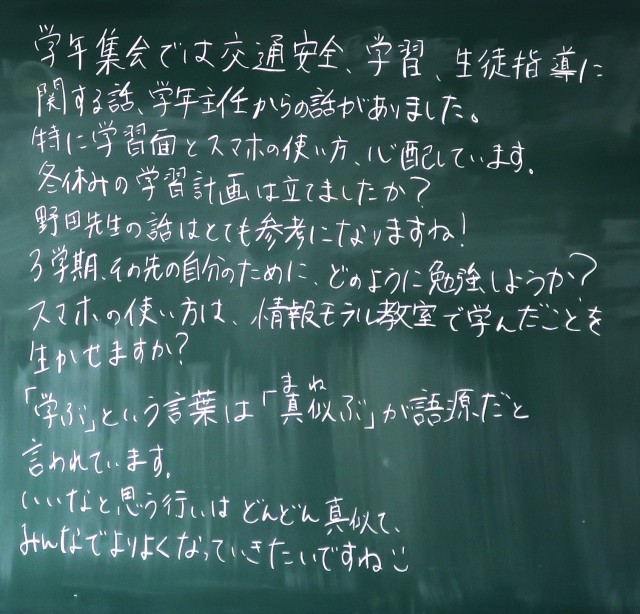 学年集会では交通安全、学習、生徒指導に
関する話、学年主任からの話がありました。
特に学習面とスマホの使い方、心配しています。
冬休みの学習計画は立てましたか？
野田先生の話はとても参考になりますね！
3学期、その先の自分のために、どのように勉強しようか？
スマホの使い方は、情報モラル教室で学んだことを
生かせますか？
「学ぶ」という言葉は「真似ぶ」が語源だと
まね
言われています。
いいなと思う行いはどんどん真似て、
みんなでよりよくなっていきたいですね